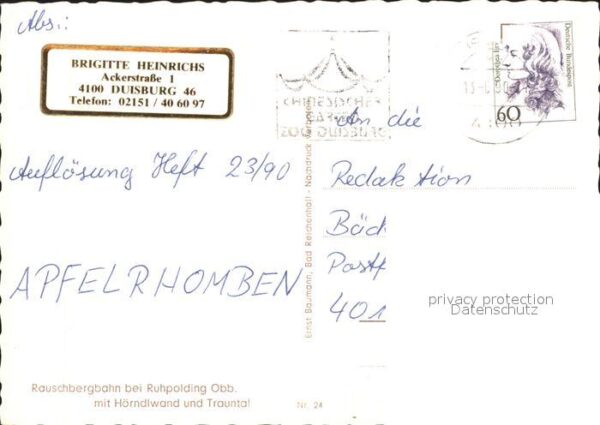 Abs.:
BRIGITTE HEINRICHS
Ackerstraße 1
4100 DUISBURG 46
Telefon: 02151 / 40 60 97
Auflösung Heft 23/90
APFELRHOMBEN
Rauschbergbahn bei Ruhpolding Obb.
mit Hörndlwand und Trauntal
Nr. 24
Ernst Baumann, Bad Reichenhall - Nachdruck verboten
CHINESISCHER
GARTEN
ZOO DUISBURG
Deutsche Bundespost
60
An die
Redaktion
Bäck
Postf
401
privacy protection
Datenschutz